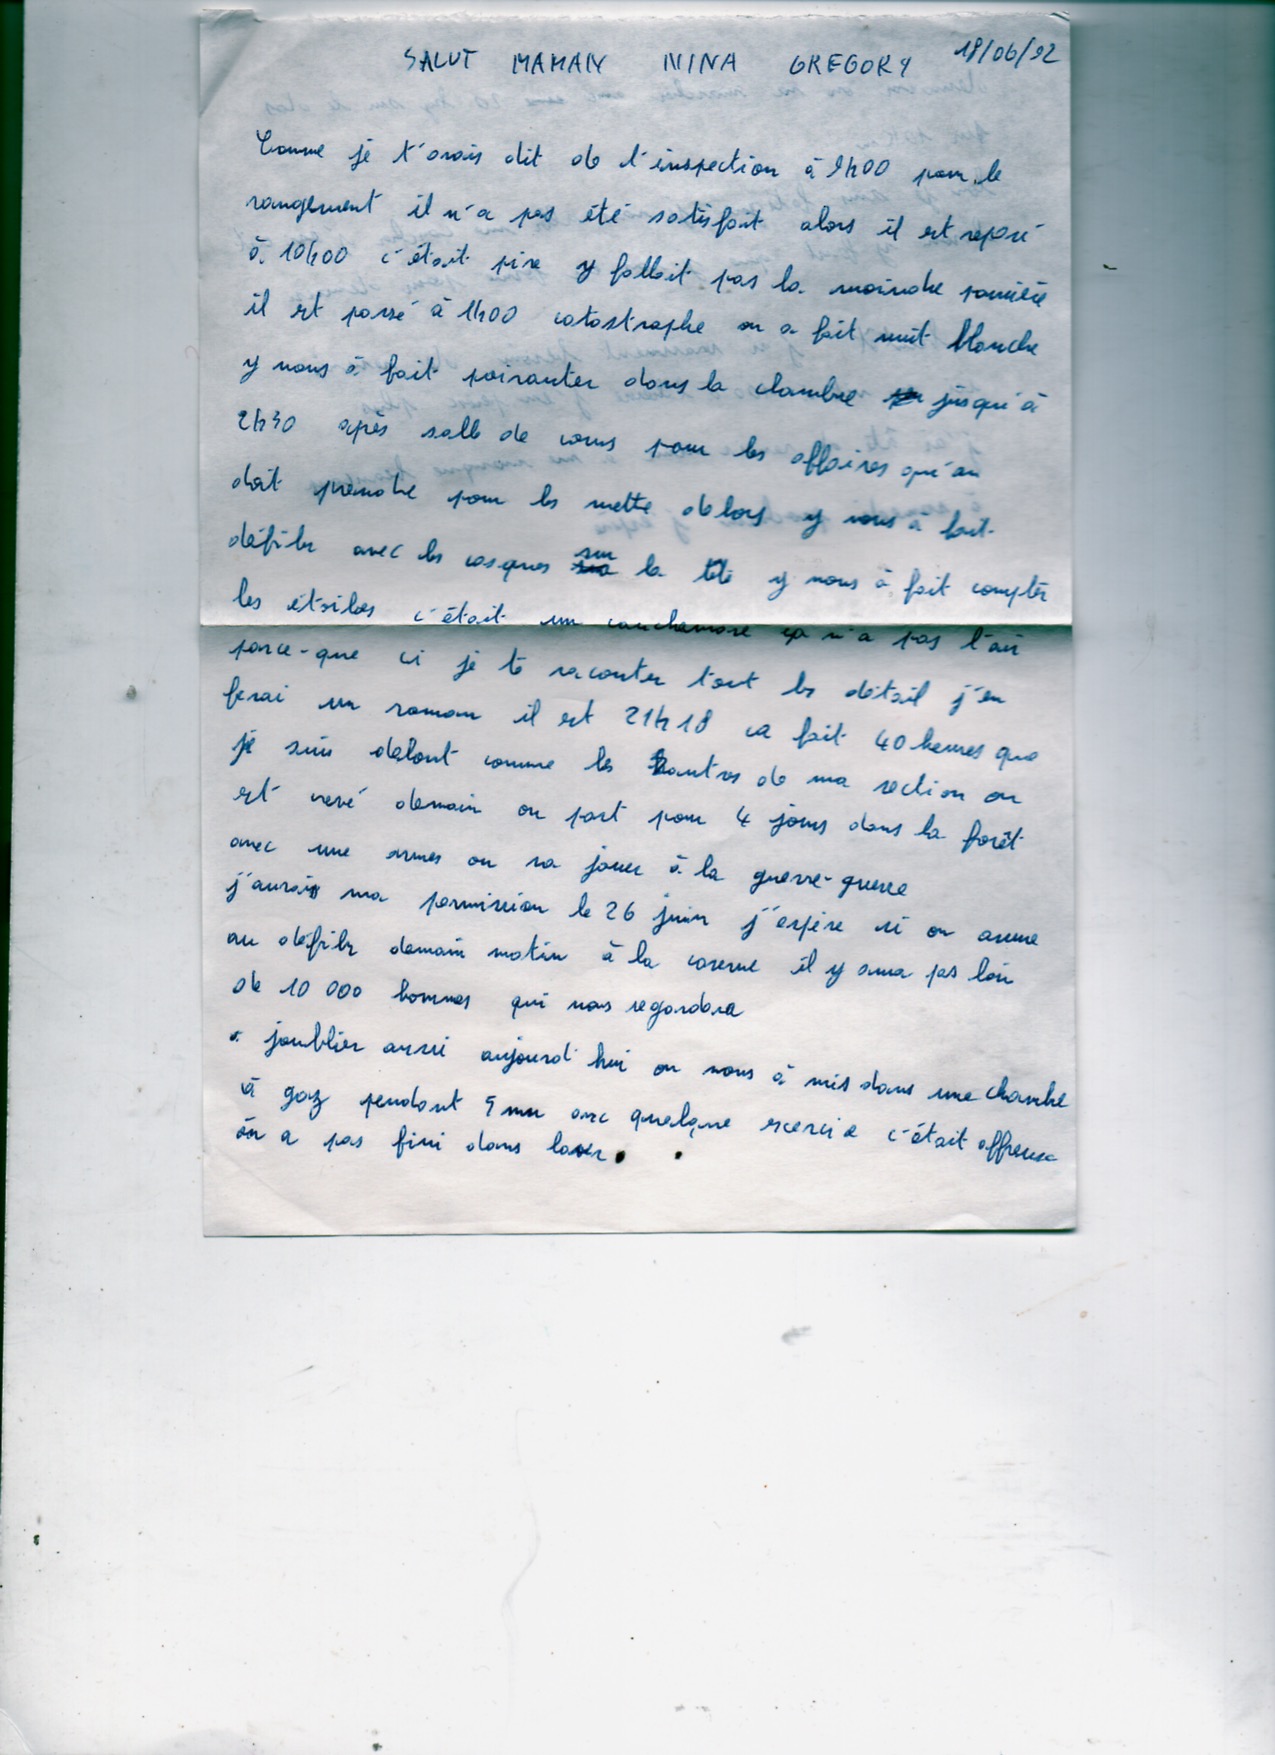 SALUT MAMAN NINA GREGORY 18/06/92
Comme je t'avais dit de l'inspection à 9h00 pour le
rangement il n'a pas été satisfait alors il est repassé
à 10h00 c'était pire y fallait pas la moindre poussière
il est passé à 1h00 catastrophe on a fait nuit blanche
y nous à fait poirauter dans la chambre jusqu'à
2h30 après salle de cours pour les affaires qu'on
doit prendre pour les mette dehors y nous à fait
défiler avec les casques sur la tête y nous à fait compter
les étoiles c'était un cauchemare ça n'a pas l'air
parce-que ci je te raconter tout les détail j'en
ferai un roman il est 21h18 ca fait 40 heures que
je suis debout comme les autres de ma section on
est crevé demain on part pour 4 jours dans la forêt
avec une armes on va jouer à la guerre-guerre
j'aurais ma permission le 26 juin j'espère si on assure
au défiler demain matin à la caserne il y aura pas loin
de 10 000 hommes qui nous regardera
a joublier aussi aujourd'hui on nous à mis dans une chambre
à gaz pendant 5 mn avc quelque exercice c'était affreux
on a pas fini dans